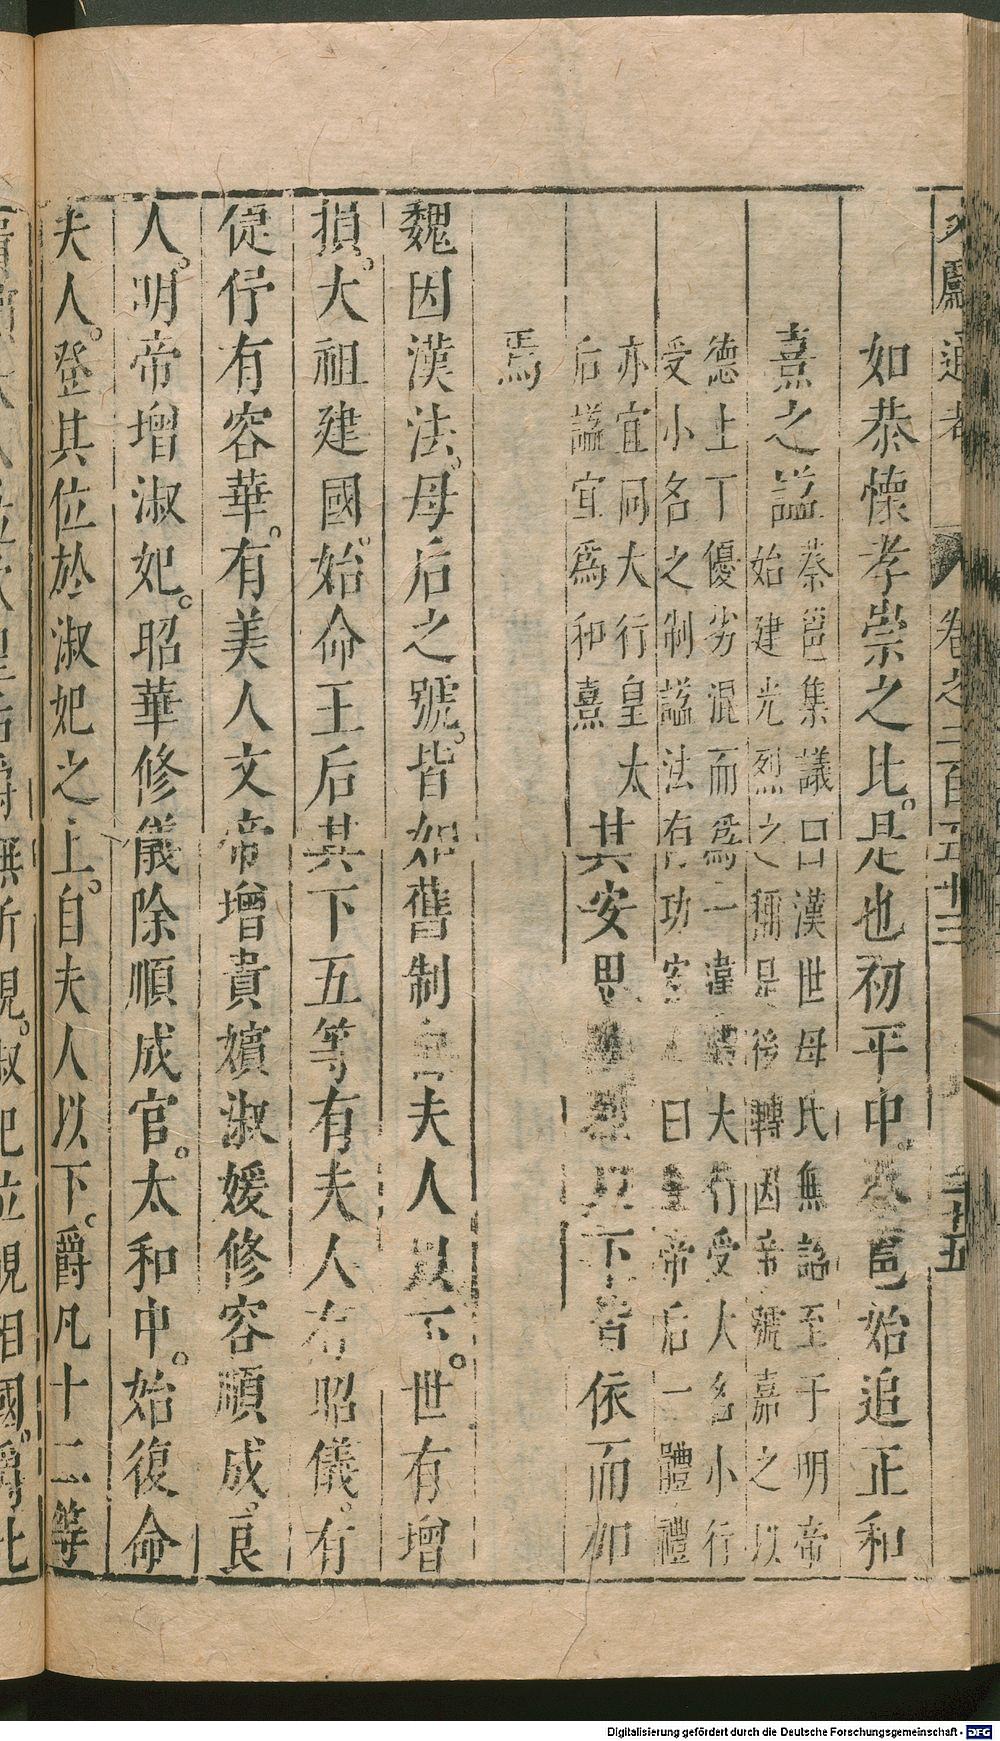 文獻通考 卷之二百五十三 三十五
如恭懷孝崇之比。是也初平中。蔡邕始追正和
熹之謚
蔡邕集議曰漢世母氏無謚至于明帝
始建光烈之稱是後轉因帝號嘉之以
德上丁優劣混而爲一違大行受大名小行
受小名之制謚法有功安曰帝后一體禮
亦宜同大行皇太
后謚宜爲和熹
其安思以下皆依而加
焉
魏因漢法。母后之號。皆如舊制自夫人以下。世有增
損。大祖建國。始命王后其下五等有夫人有昭儀。有
倢伃有容華。有美人文帝增貴嬪淑媛修容順成。良
人。明帝增淑妃。昭華修儀除順成官。太和中。始復命
夫人。登其位於淑妃之上。自夫人以下。爵凡十二等
Digitalisierung gefördert durch die Deutsche Forschungsgemeinschaft - DFG